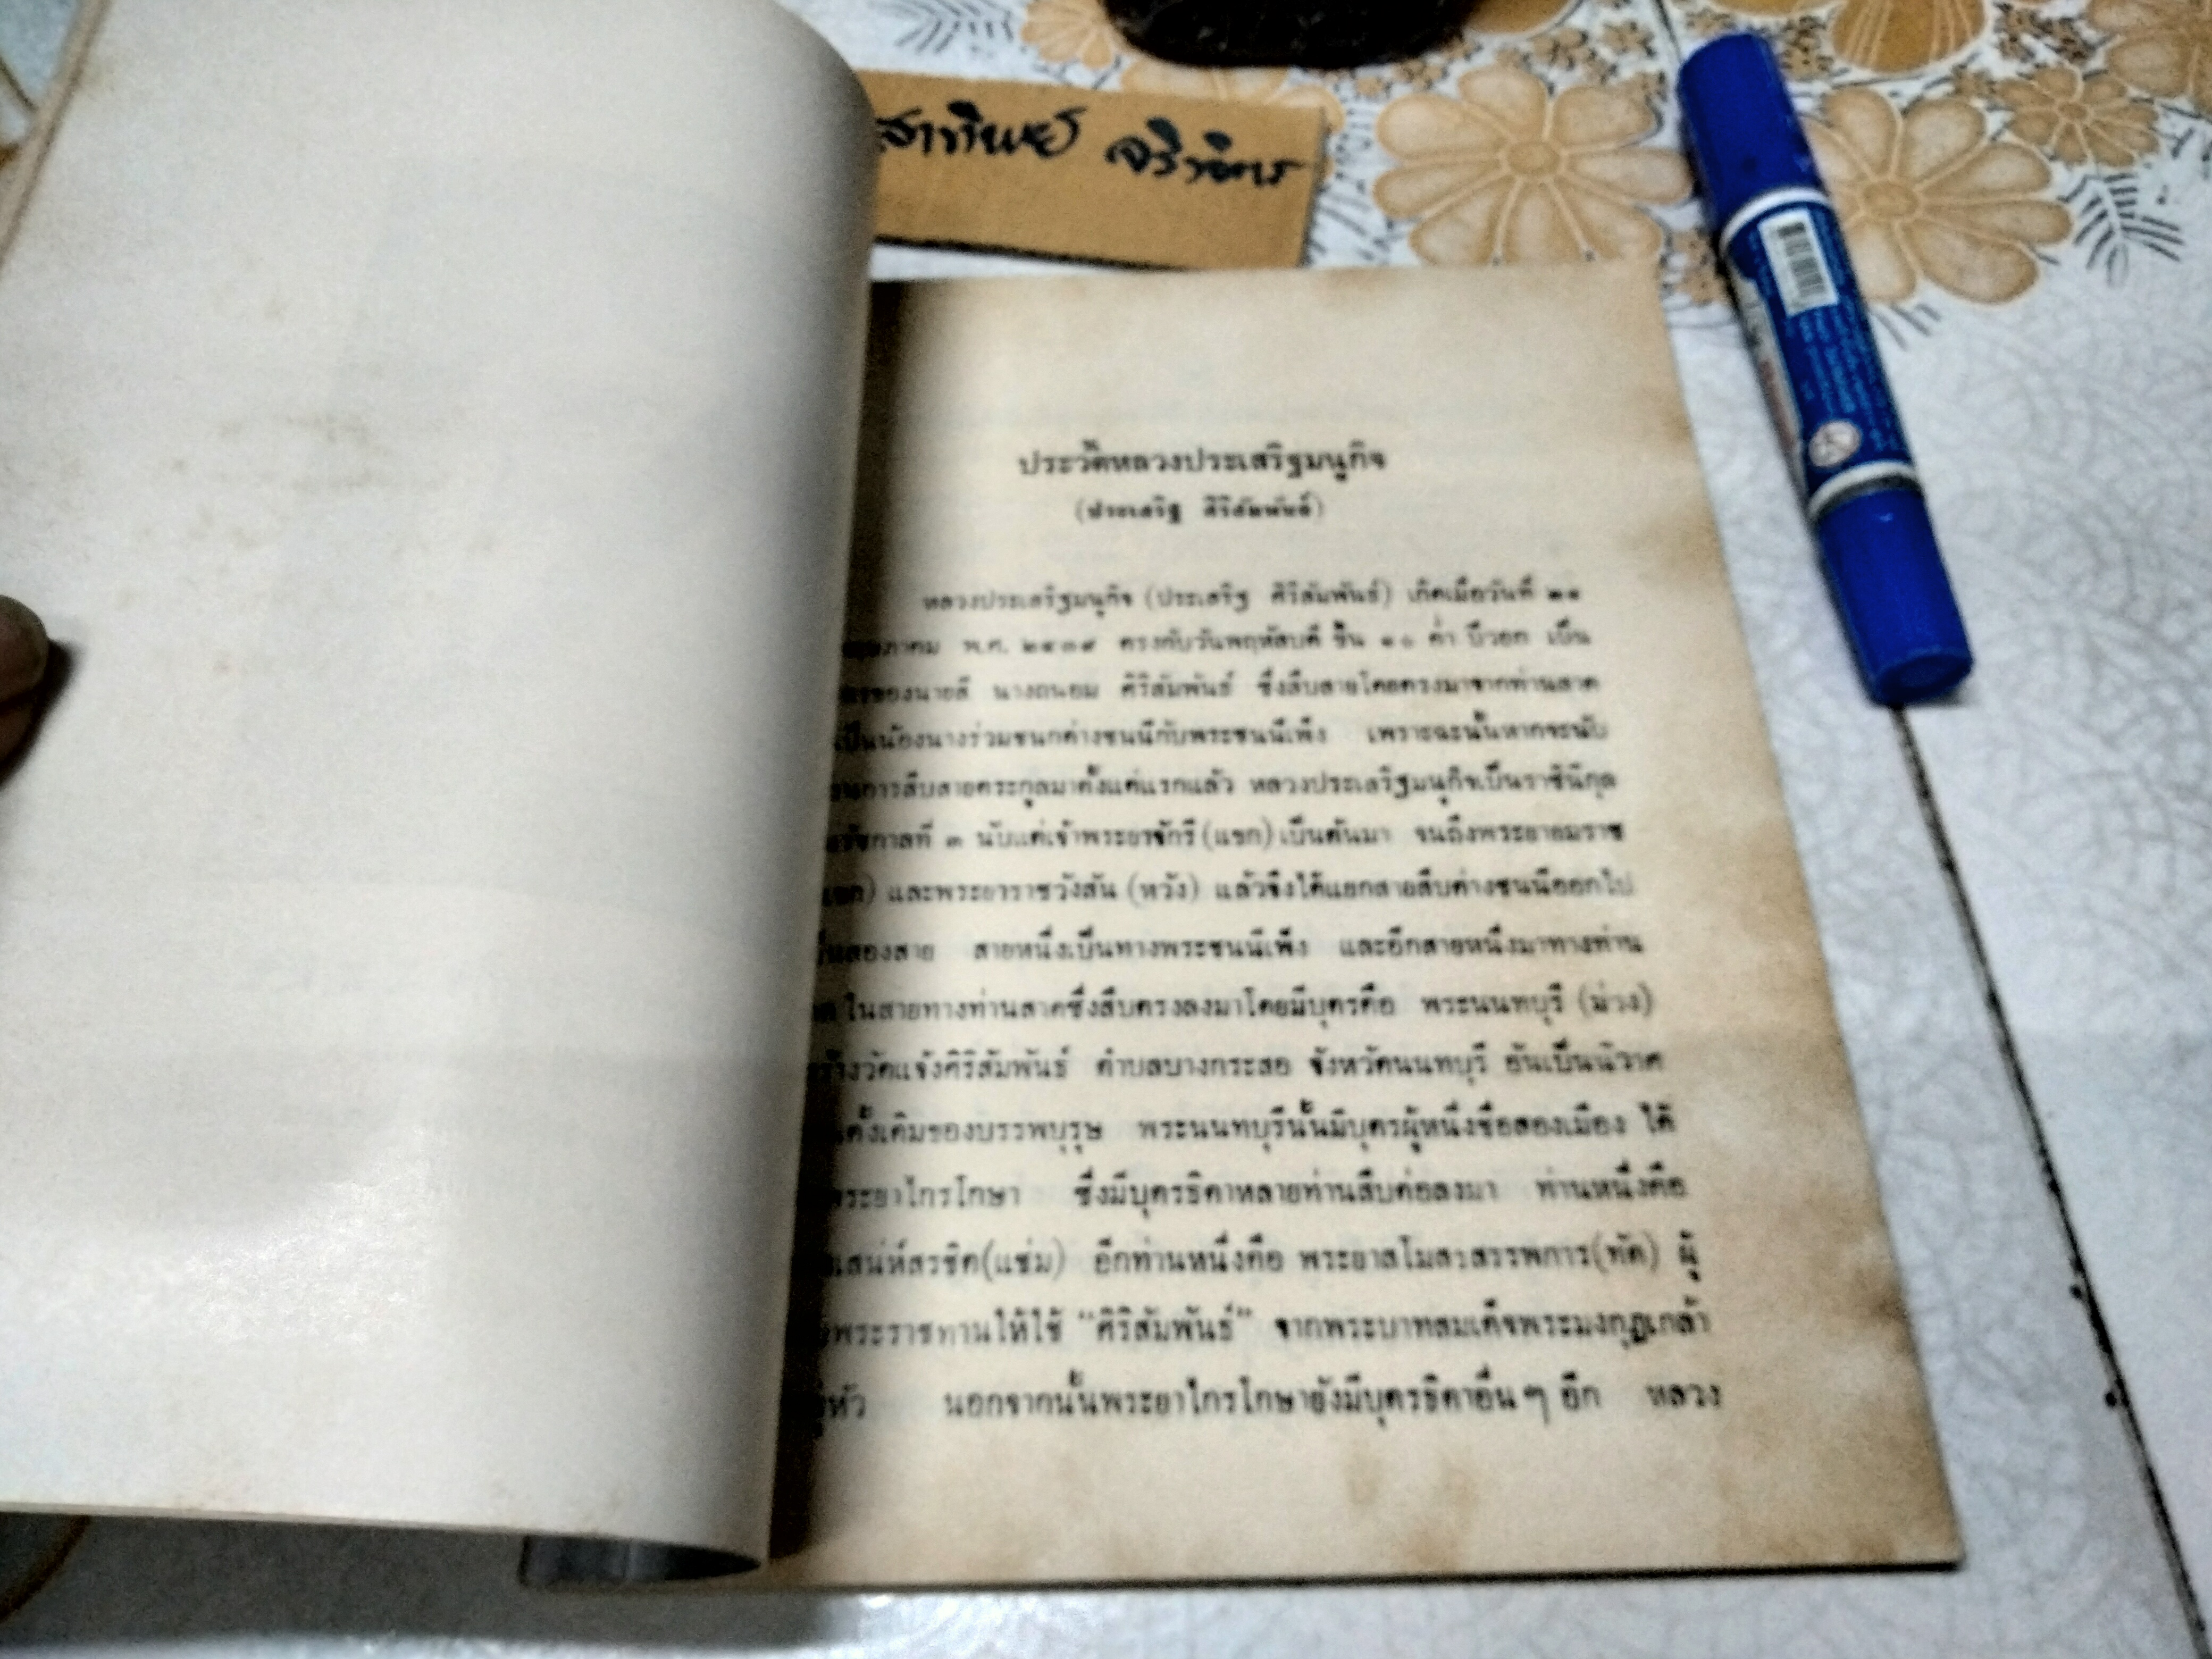 ประวัติหลวงประเสริฐมนูกิจ
(ประเสริฐ ศิริสัมพันธ์)
หลวงประเสริฐมนูกิจ (ประเสริฐ ศิริสัมพันธ์) เกิดเมื่อวันที่ ๒๑
พ.ศ. ๒๔๓๙ ตรงกับวันพฤหัสบดี ขึ้น ๑๐ ค่ำ ปีวอก เป็น
ของนายลี นางถนอม ศิริสัมพันธ์ ซึ่งสืบสายโดยตรงมาจากท่านสาด
เป็นน้องนางร่วมชนกต่างชนนีกับพระชนนีเพ็ง เพราะฉะนั้นหากจะนับ
การสืบสายตระกูลมาตั้งแต่แรกแล้ว หลวงประเสริฐมนูกิจเป็นราชินิกุล
รัชกาลที่ ๓ นับแต่เจ้าพระยาจักรี (แขก) เป็นต้นมา จนถึงพระยายมราช
และพระยาราชวังสัน (หวัง) แล้วจึงได้แยกสายสืบต่างชนนีออกไป
สองสาย สายหนึ่งเป็นทางพระชนนีเพ็ง และอีกสายหนึ่งมาทางท่าน
ในสายทางท่านสาดซึ่งสืบตรงลงมาโดยมีบุตรคือ พระนนทบุรี (ม่วง)
วัดแจ้งศิริสัมพันธ์ ตำบลบางกระสอ จังหวัดนนทบุรี อันเป็นนิวาศ
ตั้งเดิมของบรรพบุรุษ พระนนทบุรีนั้นมีบุตรผู้หนึ่งชื่อสองเมือง ได้
พระยาไกรโกษา ซึ่งมีบุตรธิดาหลายท่านสืบต่อลงมา ท่านหนึ่งคือ
เสน่ห์สรชิต(แช่ม) อีกท่านหนึ่งคือ พระยาสโมสรสรรพการ(ทัด) ผู้
พระราชทานให้ใช้ “ศิริสัมพันธ์” จากพระบาทสมเด็จพระมงกุฎเกล้า
นอกจากนั้นพระยาไกรโกษายังมีบุตรธิดาอื่น ๆ อีก หลวง